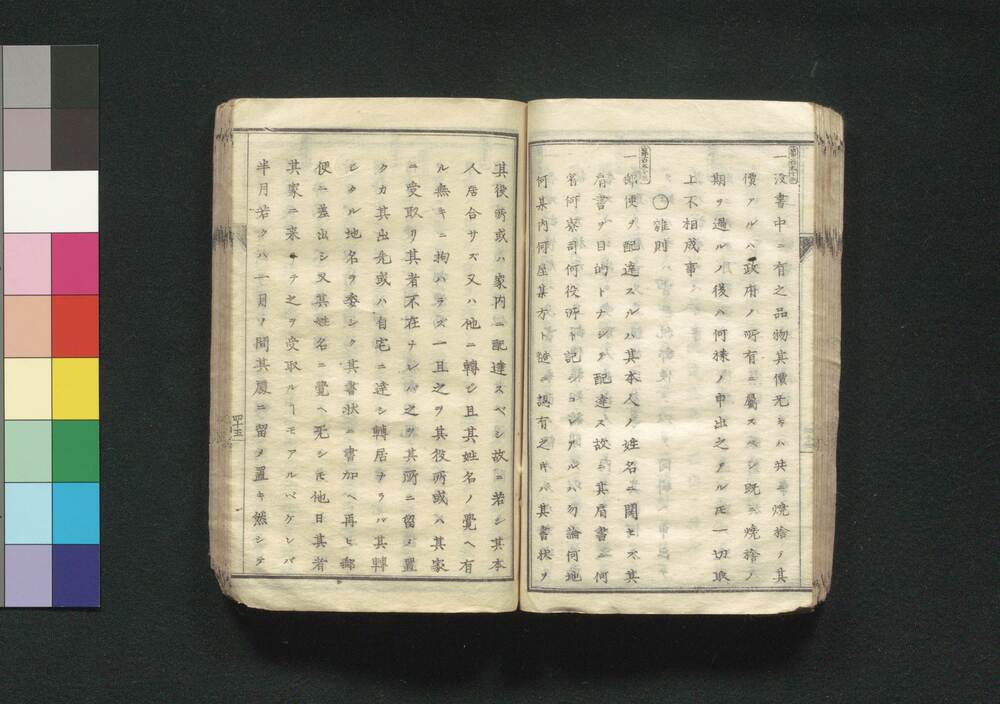 一没書中ニ有之品物其價无キハ共ニ燒捨ノ其
價アルハ政府ノ所有ニ屬スベシ既ニ燒捨ノ
期ヲ過ルノ後ハ何樣ノ申出之アルモ一切取
上不相成事
○雜則
一郵便ヲ配達スルハ其本人ノ姓名ニ関セス其
肩書ヲ目的トナシテ配達ス故ニ其肩書ニ何
省何寮司何役所ト記シコレアルハ勿論何地
何某内何屋某方ト認有之キハ其書狀ヲ
其役所或ハ家内ニ配達スベシ故ニ若シ其本
人居合サズ又ハ他ニ轉シ且其姓名ノ覺ヘ有
ル無キニ拘ハラズ一且之ヲ其役所或ハ其家
ニ受取リ其者不在ナレハ之ヲ其所ニ留メ置
クカ其出先或ハ自宅ニ達シ轉居ナラハ其轉
シタル地名ヲ委シク其書狀ニ書加ヘ再ヒ郵
便ニ差出シ又其姓名ニ覺ヘ无シモ他日其者
其家ニ来リテ之ヲ受取ルヿモアルベケレバ
半月若クハ一月ノ間其儘ニ留メ置キ然シテ
四十五